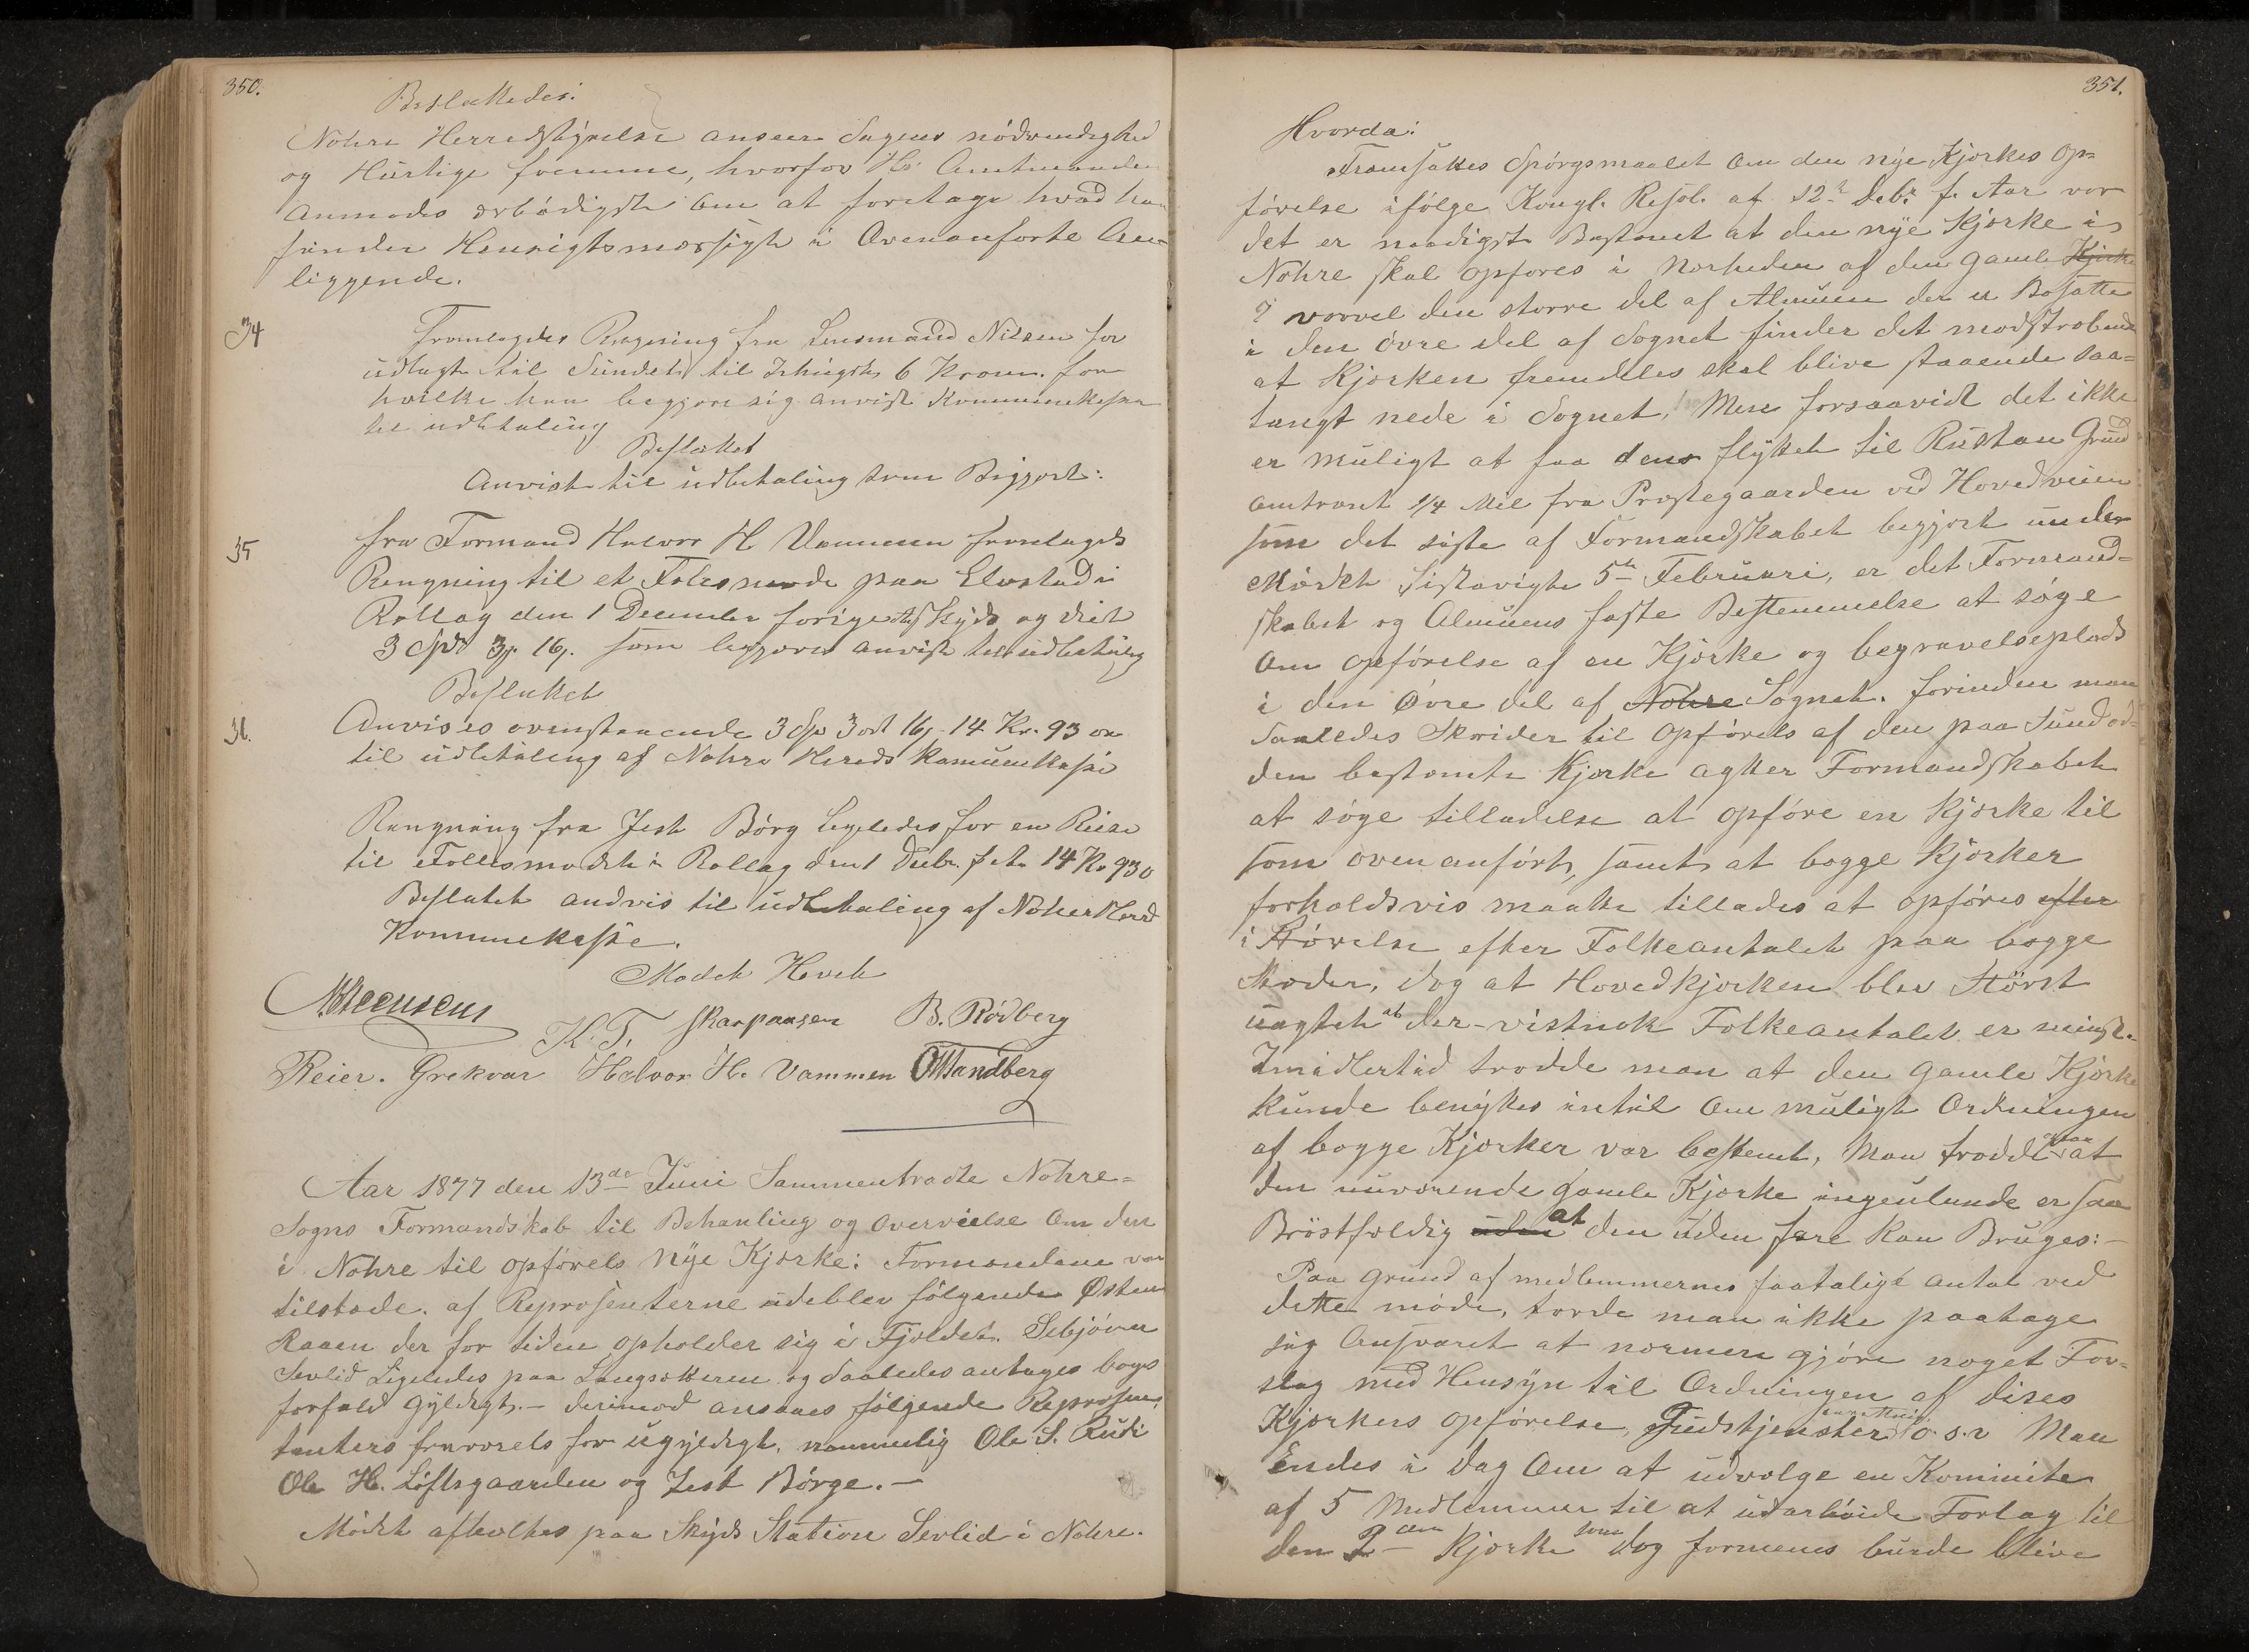 350.
Besluttedes:
Nohre Herredstyrelse anseer Sagens nödvendighed
og Hurtige fremme, hvorfor Hr. Amtmanden
anmodes ærbödigst om at foretage hvad han
finder Hensigtsmæssigt i Ovenanförte An-
liggende.
34
Fremlagdes Regning fra Lensmand Nilsen for
udlagt til Sundets til 6 Kroner. for
hvilke han begjære sig anvist Kommunekassen
til udbetaling
Besluttet
Anvist til udbetaling som Begjært:
35
fra Formand Halvor H Vammen fremlagds
Rengning til et Fælesmøde paa Elvestad i
Rollag den 1 December forige Aar Skyds og diæt
3 Spd 3 16 som begjæres anvist til udbetaling
Besluttet
36.
Anvises ovenstaaende 3 Spd 3 ort 16 - 14 Kr. 93 øre
til udbetaling af Nohre Hereds Kamunekasse
Rengning fra Jest Börg Ligeledes for en Reise
til Fællesmødet i Rollag den 1 Decbr. f. A. 14 Kr 93 ö
Beslutet andvis til udbetaling af Nohre Herred
Kommunekasse.
Mødet Hævet
H. T. Skarpaasen B. Rödberg
Reier. Grekvar Halvor H. Vammen O Sandberg
Aar 1877 den 13de Juni Sammentraadte Nohre-
Sogns Formandskab til Behanling og overveielse Om den
i Nohre til opförels nye Kjørke: Formændene var
tilstæde. af Repræsenterne udeblev fölgende Østen
Raaen der for tiden opholder sig i Fjeldet. Sebjörn
Sevlid Ligeledes paa Langsætteren og saaledes antages begs
forfald gyldigt. - derimod ansaaes fölgende Repræsen-
tanters fraværels for ugyldigt, nemmelig Ole S. Rudi
Ole H. Löftsgaarden og Jest Börge. -
Mödet afholtes paa Skyds Station Sevlid i Nohre.
351.
Hvorda:
Fremsattes Spörgsmaalet Om den nye Kjørkes Op-
förelse ifölge Kongl. Resol. af 12te Debr. f. Aar vor
det er naadigst Bestemt at den nye Kjørke i
Nohre skal opføres i Nærheden af den gamle Kjørke
vorvel den større del af Almuen der er Bosatte
i den övre del af Sognet finder det modstræbende
at Kjørken fremdeles skal blive staaende saa-
langt nede i Sognet. Men forsaavidt det ikke
er muligt at faa dens flyttet til Rustan Grund
Omtrent 1/4 Mil fra Prestegaarden ved Hovedveien
som det siste af Formandskabet begjært under
Mödet Sistavigte 5te Februari, er det Formand-
skabet og Almuens faste Bestemmelse at söge
Om opförelse af en Kjørke og begravelseplads
i den Øvre del af Nohre Sognet. forinden man
Saaledes Skrider til Opförels af den paa Sund od-
den bestemte Kjørke agter Formandskabet
at söge tilladelse at opföre en Kjørke til
som ovenanfört, samt at begge Kjørker
forholdsvis maatte tillades at opföres efter
i Störelse efter Folkeantalet paa begge
Stæder, dog at Hovedkjørken blev Störst
uagtet at der vistnok Folkeantalet er minst.
Imidlertid troede man at den gamle Kjørke
kunde benyttes intil Om muligt Ordningen
af begge Kjørker var bestemt, Man troede at
den nuværende gamle Kjørke ingenlunde er saa
Bröstfeldig uden at den uden fare Kan Bruges: -
Paa grund af medlemmernes faatalige antal ved
dette möde, torde man ikke paatage
sig Ansvaret at nærmere gjöre noget For-
slag med Hensyn til Ordningen af dises
Kjørkers opförelse, Gudstjenster o.s.v Man
Endes i dag Om at udvælge en Kominite
af 5 Medlemmer til at udarbeide Forlag til
den 2den Kjørke som dog formenes burde blive